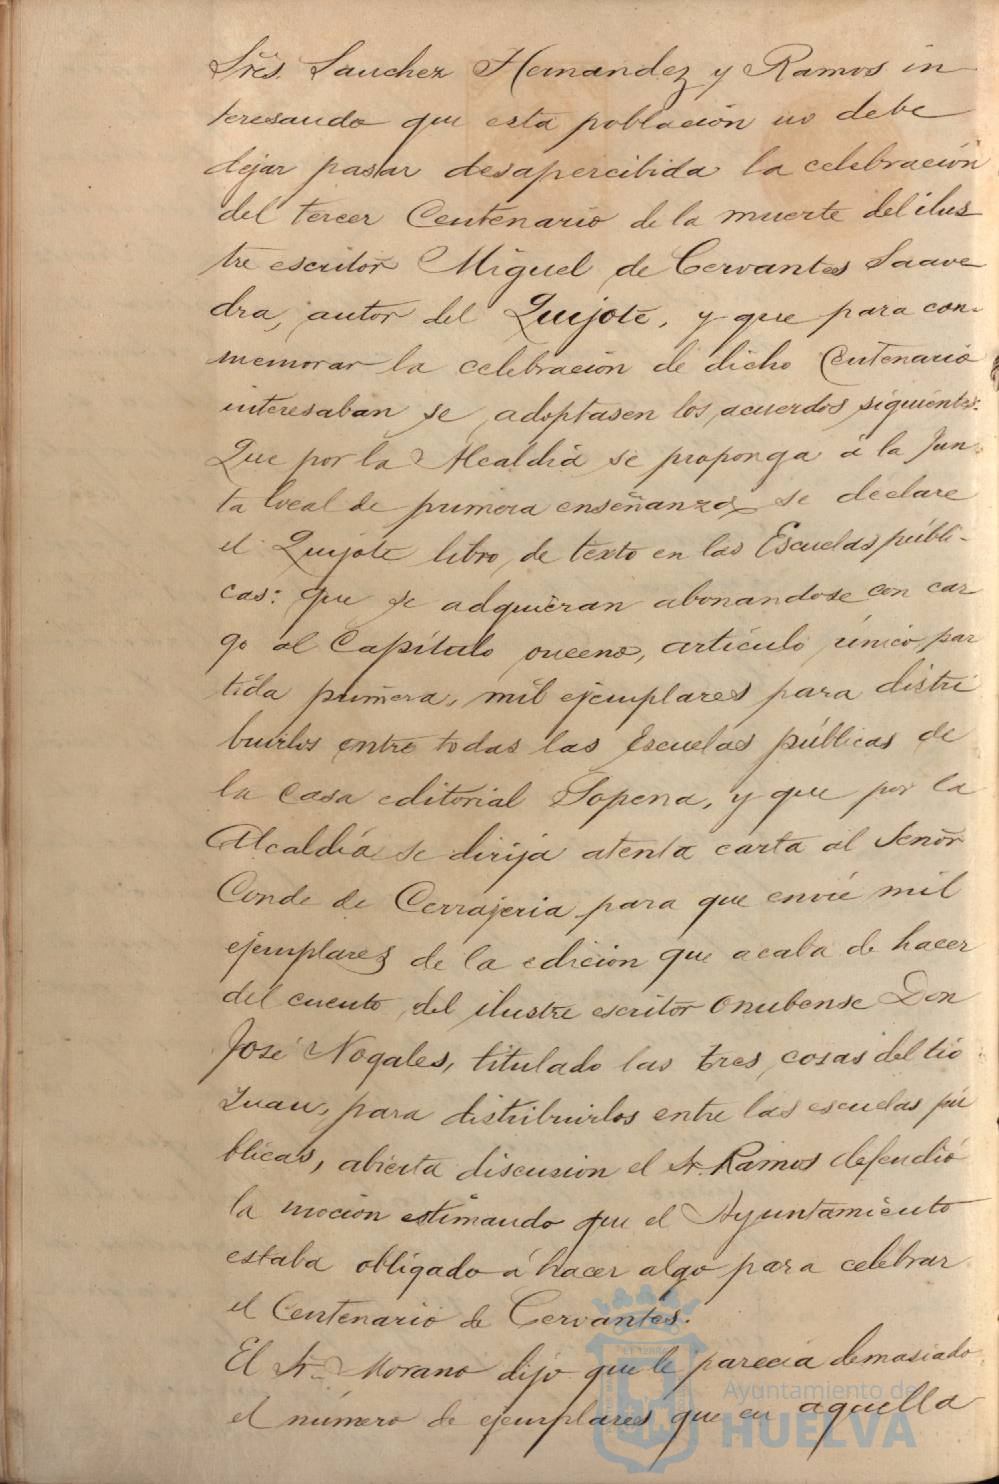 Sres. Sanchez Hernandez y Ramos in
teresando que esta población no debe
dejar pasar desapercibida la celebración
del tercer Centenario de la muerte del ilus
tre escritor Miguel de Cervantes Saave
dra, autor del Quijote, y que para con-
memorar la celebración de dicho Centenario
interesaban se adoptasen los acuerdos siguientes:
Que por la Alcaldia se proponga á la Jun-
ta local de primera enseñanza se declare
el Quijote libro de texto en las Escuelas públi-
cas: que se adquieran abonandose con car
go al Capítulo onceno, artículo único, par
tida primera, mil ejemplares para distri
buirlos entre todas las Escuelas públicas de
la casa editorial Sopena, y que por la
Alcaldía se dirija atenta carta al Señor
Conde de Cerrajeria para que envíe mil
ejemplares de la edición que acaba de hacer
del cuento del ilustre escritor Onubense Don
José Nogales, titulado las tres cosas del tio
Juan, para distribuirlos entre las escuelas pú
blicas, abierta discusion el Sr. Ramos defendió
la moción estimando que el Ayuntamiento
estaba obligado á hacer algo para celebrar
el Centenario de Cervantes.
El Sr. Morano dijo que le parecia demasiado
el número de ejemplares que en aquella
Ayuntamiento de
HUELVA